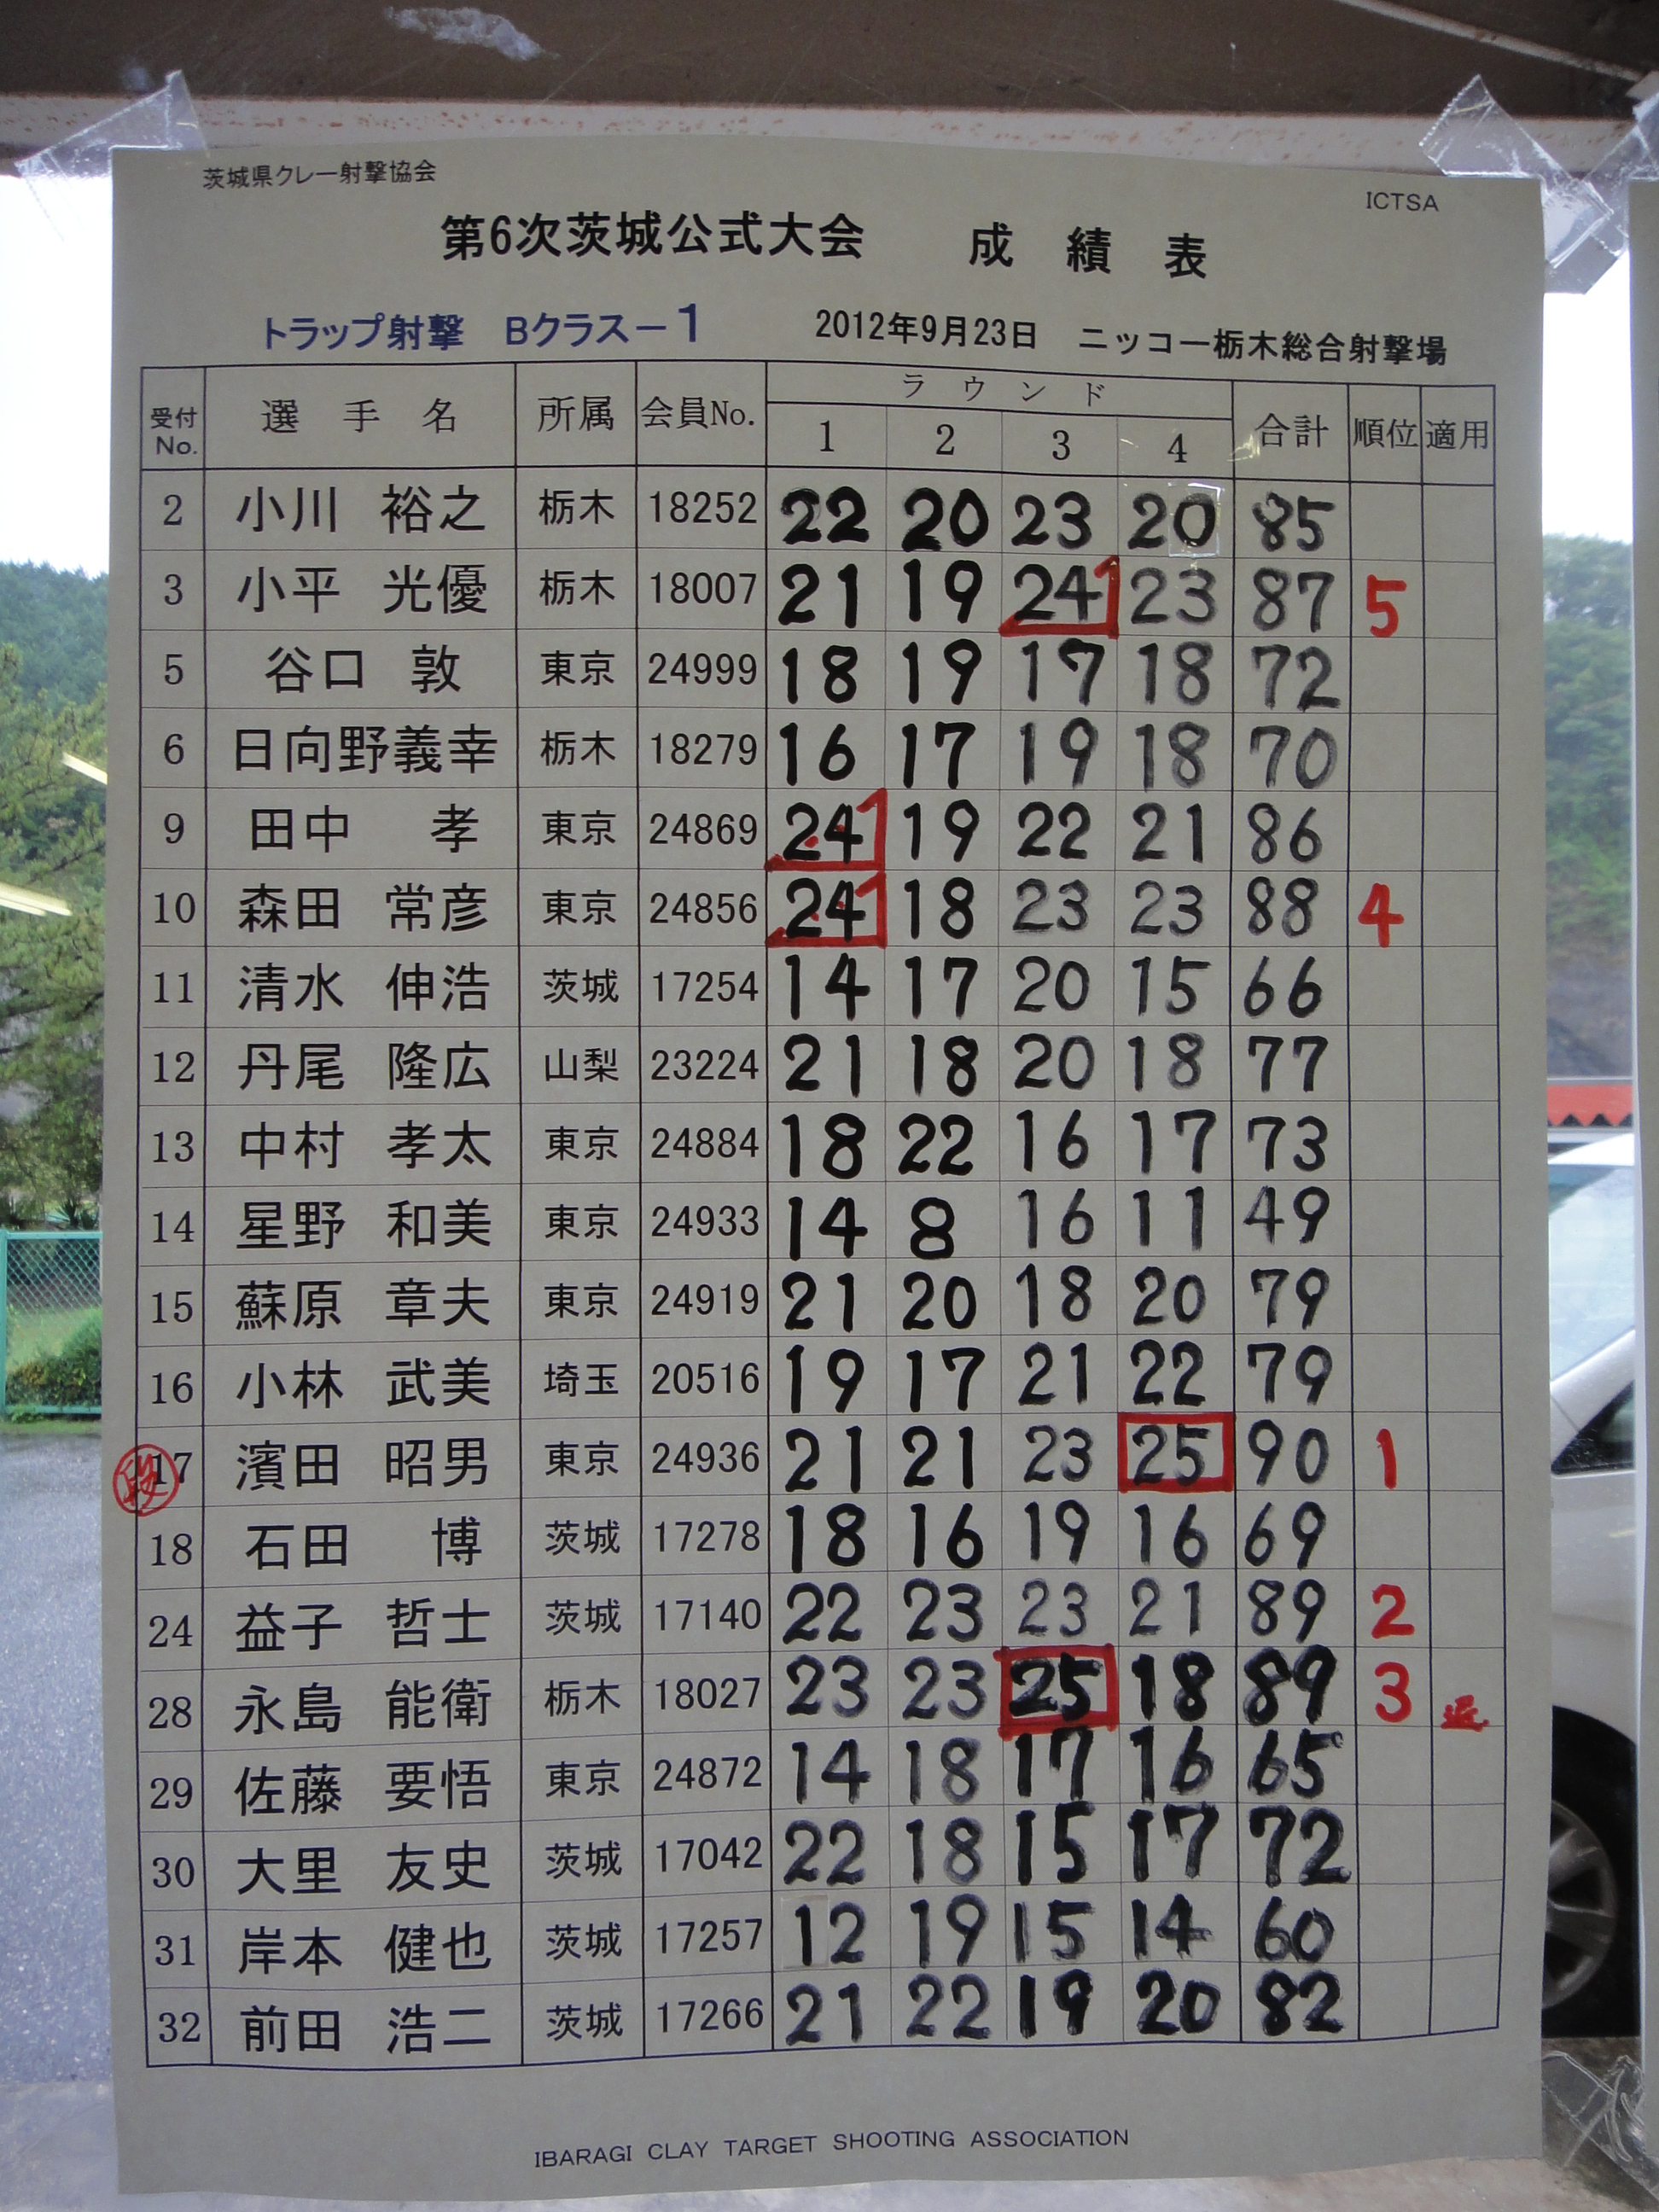 茨城県クレー射撃協会
ICTSA
第6次茨城公式大会 成績表
トラップ射撃 Bクラスー1 2012年9月23日 ニッコー栃木総合射撃場
受付No. 選手名 所属 会員No. ラウンド 1 2 3 4 合計 順位 適用
2 小川 裕之 栃木 18252 22 20 23 20 85
3 小平 光優 栃木 18007 21 19 24 1 23 87 5
5 谷口 敦 東京 24999 18 19 17 18 72
6 日向野義幸 栃木 18279 16 17 19 18 70
9 田中 孝 東京 24869 24 1 19 22 21 86
10 森田 常彦 東京 24856 24 1 18 23 23 88 4
11 清水 伸浩 茨城 17254 14 17 20 15 66
12 丹尾 隆広 山梨 23224 21 18 20 18 77
13 中村 孝太 東京 24884 18 22 16 17 73
14 星野 和美 東京 24933 14 8 16 11 49
15 蘇原 章夫 東京 24919 21 20 18 20 79
16 小林 武美 埼玉 20516 19 17 21 22 79
17 濱田 昭男 東京 24936 21 21 23 25 90 1
18 石田 博 茨城 17278 18 16 19 16 69
24 益子 哲士 茨城 17140 22 23 23 21 89 2
28 永島 能衛 栃木 18027 23 23 25 18 89 3
29 佐藤 要悟 東京 24872 14 18 17 16 65
30 大里 友史 茨城 17042 22 18 15 17 72
31 岸本 健也 茨城 17257 12 19 15 14 60
32 前田 浩二 茨城 17266 21 22 19 20 82
IBARAGI CLAY TARGET SHOOTING ASSOCIATION